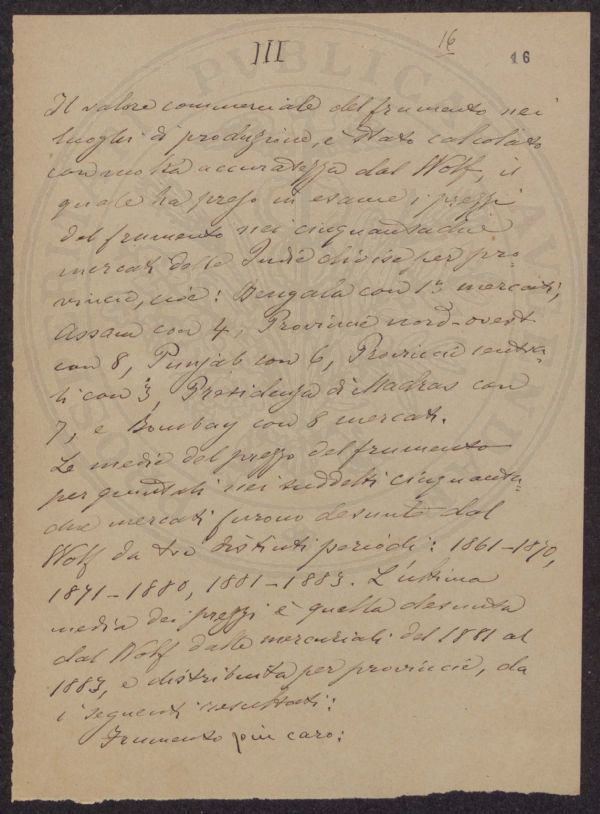 III
16
16
Il valore commerciale del frumento nei
luoghi di produzione, è stato calcolato
con molta accuratezza dal Wolf, il
quale ha preso in esame i prezzi
del frumento nei cinquantadue
mercati delle Indie divise per pro
vincie, cioè: Bengala con mercati,
Assam con 4, Provincie nord-ovest
con 8, Punjab con 6, Provincie centra-
li con 3, Presidenza di Madras con
7, e Bombay con 8 mercati.
Le medie del prezzo del frumento
per quintali nei suddetti cinquanta-
due mercati furono desunte dal
Wolf da tre distinti periodi: 1861-1870,
1871-1880, 1881-1883. L'ultima
media dei prezzi è quella desunta
dal Wolf dalle mercuriali del 1881 al
1883, e distribuita per provincie, da
i seguenti resultati:
Frumento più caro: